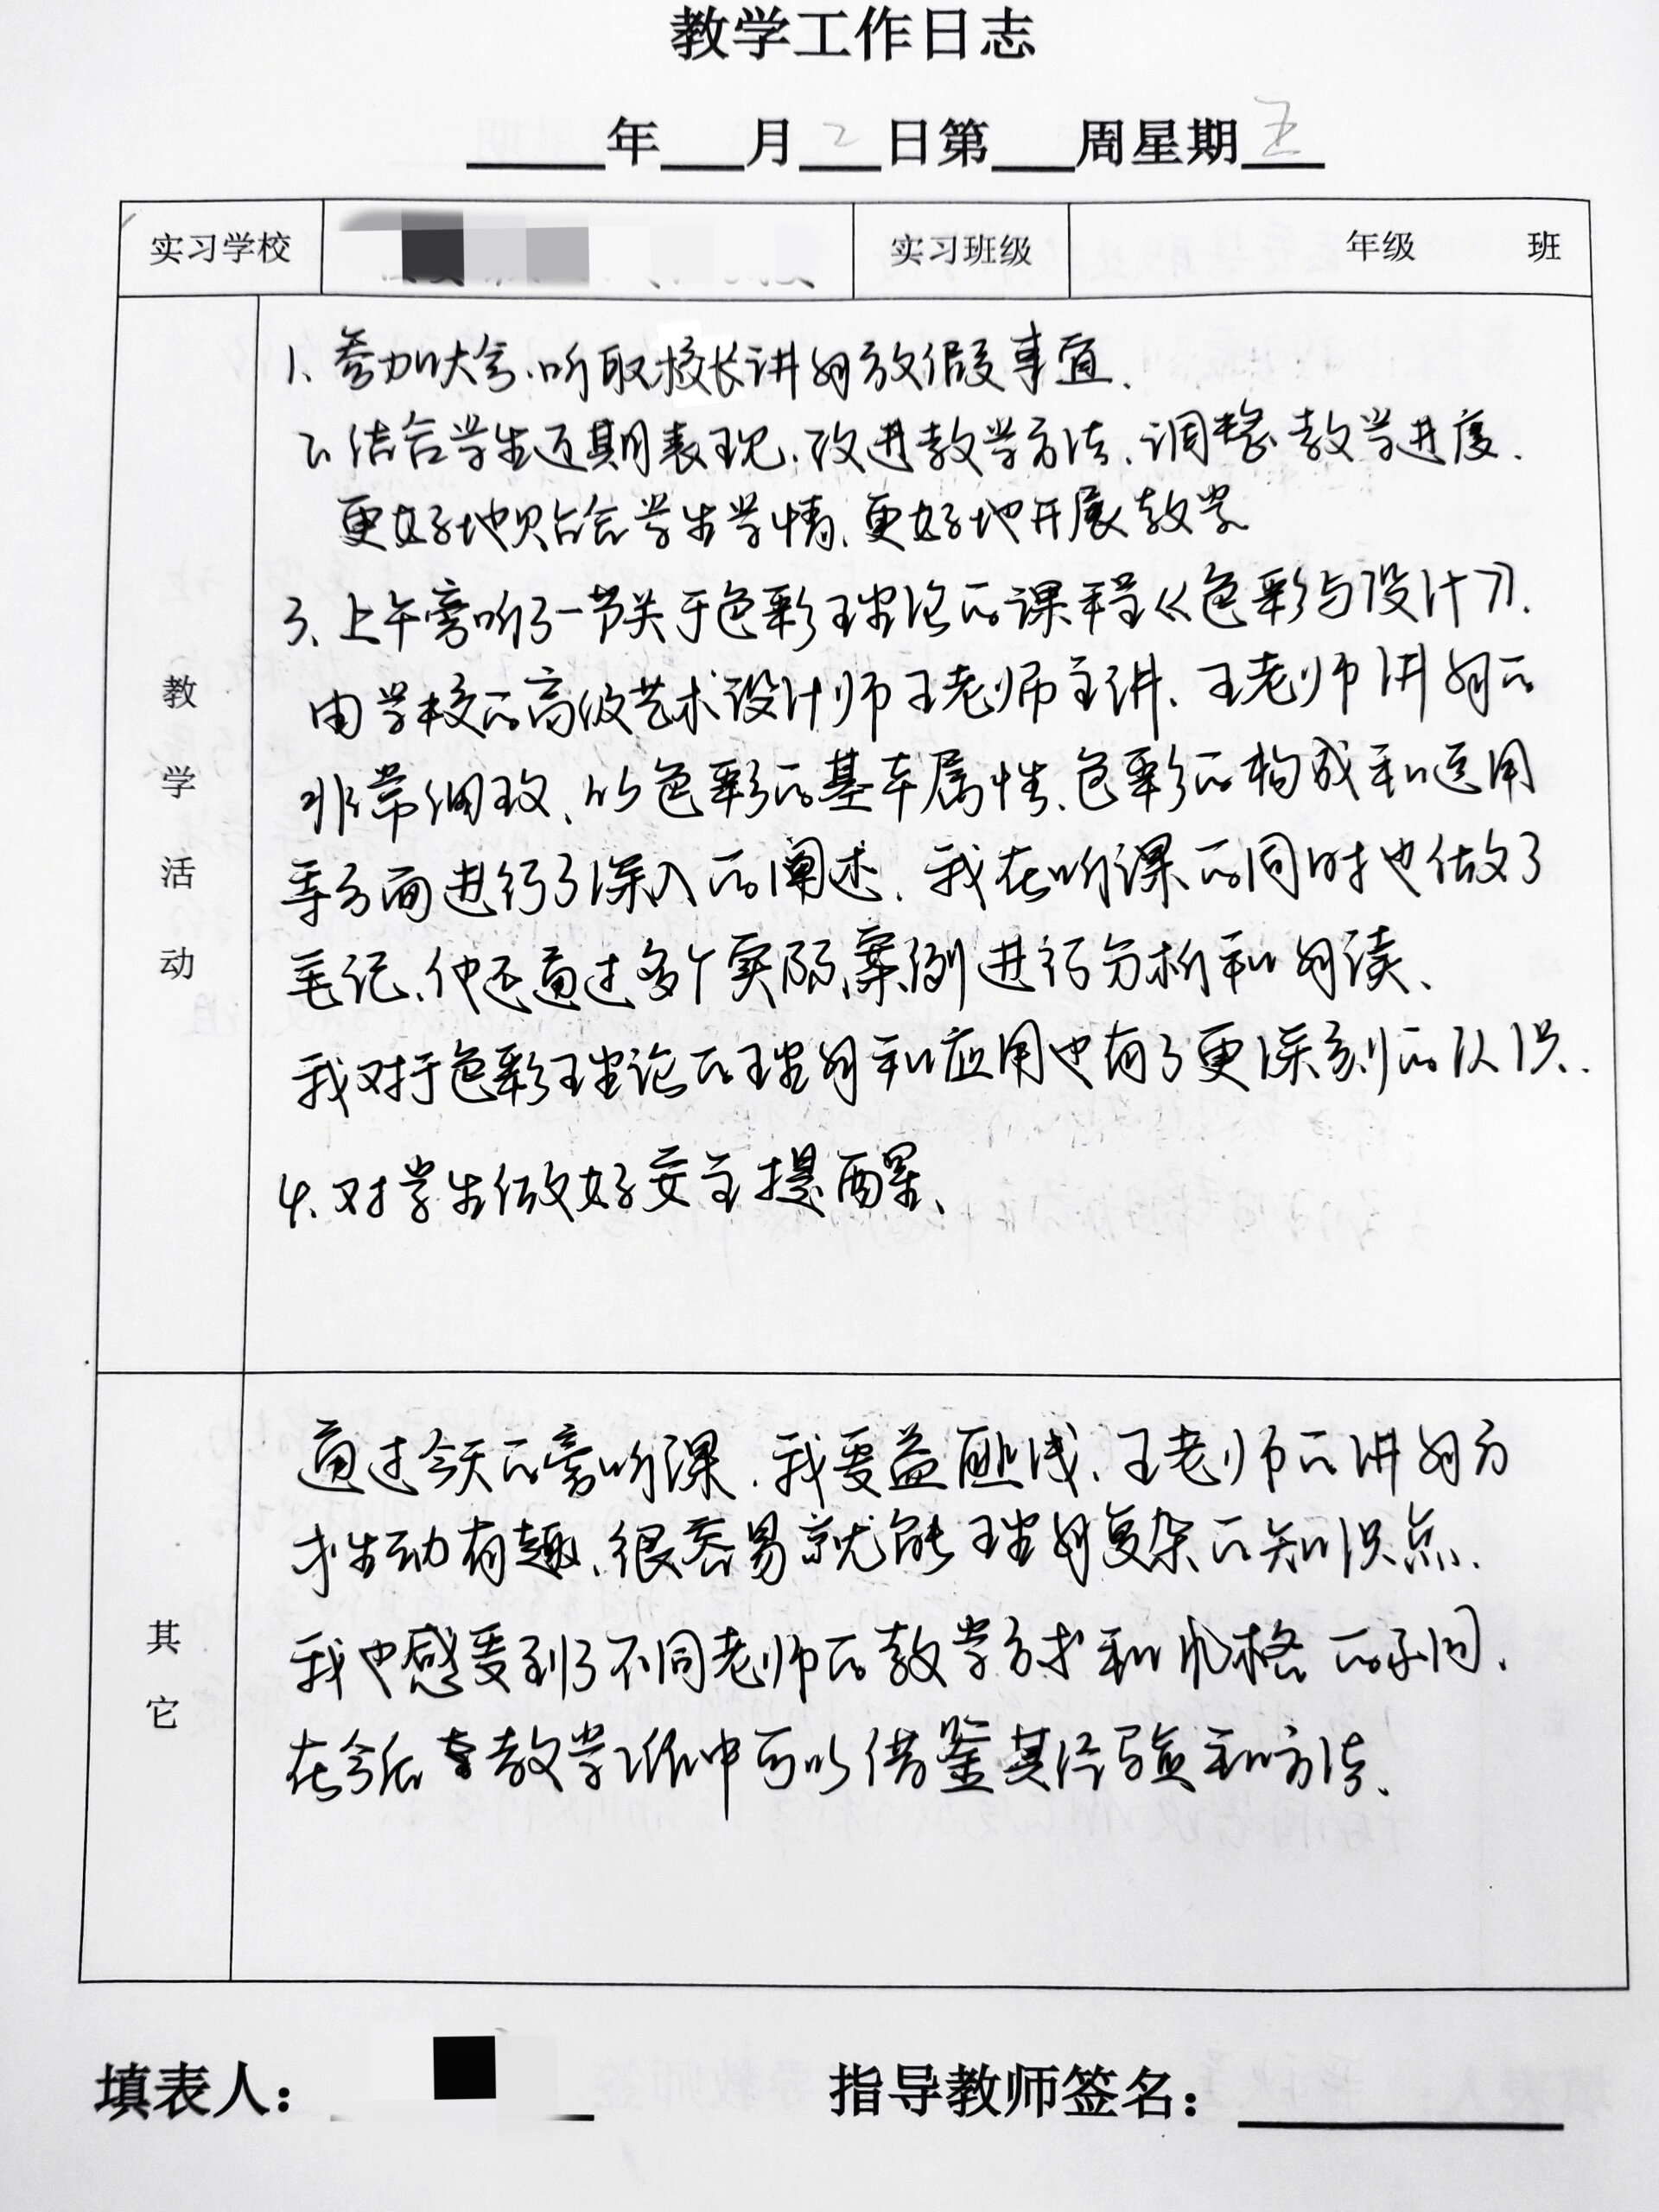 教学工作日志
年 月 2 日第 周星期 五
实习学校 实习班级 年级 班
教学活动
1、参加大会,听取校长讲解放假事宜.
2、结合学生近期表现,改进教学方法,调整教学进度.
更好地贴合学生学情,更好地开展教学
3、上午旁听了一节关于色彩理论的课程《色彩与设计》.
由学校的高级艺术设计师王老师主讲、王老师讲解的
非常细致、从色彩的基本属性、色彩的构成和运用
等方面进行了深入的阐述.我在听课的同时也做了
笔记、他还通过多个实际案例进行分析和解读、
我对于色彩理论的理解和应用也有了更深刻的认识.
4、对学生做好安全提醒、
其它
通过今天的旁听课,我受益匪浅,王老师的讲解方
式生动有趣,很容易就能理解复杂的知识点.
我也感受到了不同老师的教学方式和风格的不同,
在今后教学工作中可以借鉴其经验和方法、
填表人: 指导教师签名: